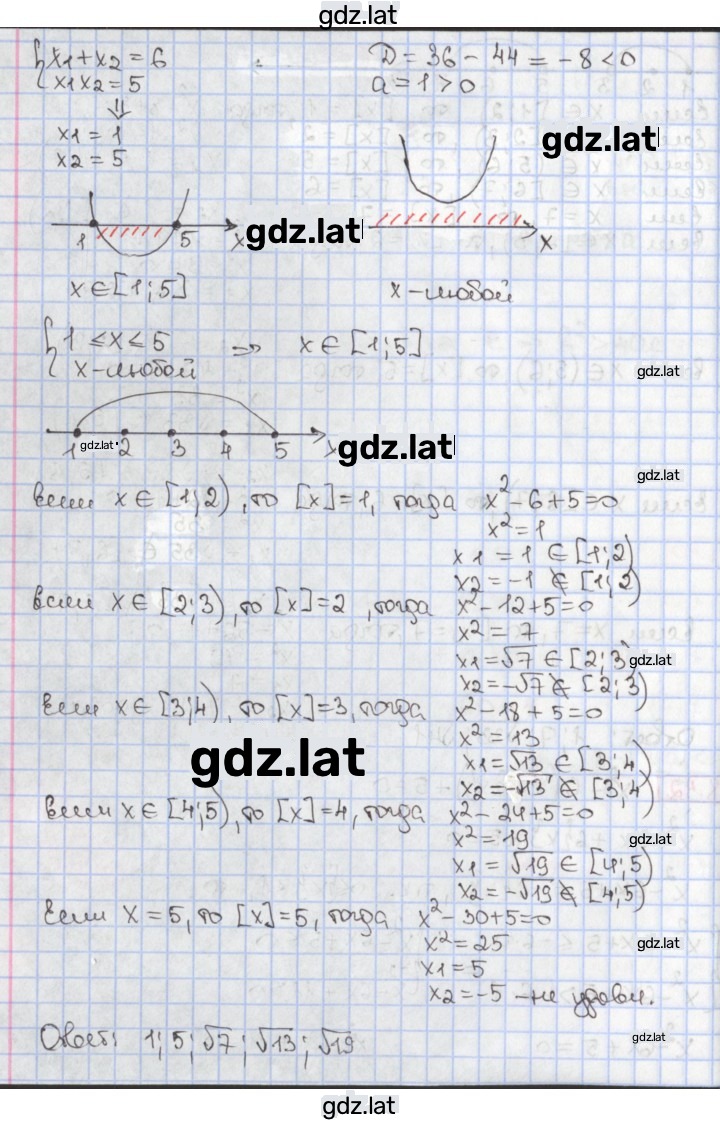 gdz.lat
x1 + x2 = 6
x1x2 = 5
⇓
x1 = 1
x2 = 5
D = 36 - 44 = -8 < 0
a = 1 > 0
gdz.lat
1 5 x
gdz.lat
x
x ∈ [1; 5]
x - любой
{ 1 ≤ x ≤ 5 => x ∈ [1; 5]
x - любой
gdz.lat
1 gdz.lat 2 3 4 5 x gdz.lat
gdz.lat
если x ∈ [1; 2), то [x] = 1, тогда x² - 6 + 5 = 0
x² = 1
x1 = 1 ∈ [1; 2)
x2 = -1 ∉ [1; 2)
если x ∈ [2; 3), то [x] = 2, тогда x² - 12 + 5 = 0
x² = 7
x1 = √7 ∈ [2; 3) gdz.lat
x2 = -√7 ∉ [2; 3)
Если x ∈ [3; 4), то [x] = 3, тогда x² - 18 + 5 = 0
x² = 13
gdz.lat
x1 = √13 ∈ [3; 4)
x2 = -√13 ∉ [3; 4)
если x ∈ [4; 5), то [x] = 4, тогда x² - 24 + 5 = 0
x² = 19 gdz.lat
x1 = √19 ∈ [4; 5)
x2 = -√19 ∉ [4; 5)
Если x = 5, то [x] = 5, тогда x² - 30 + 5 = 0
x² = 25 gdz.lat
x1 = 5
x2 = -5 - не удовл.
gdz.lat
Ответ: 1; 5; √7; √13; √19
gdz.lat